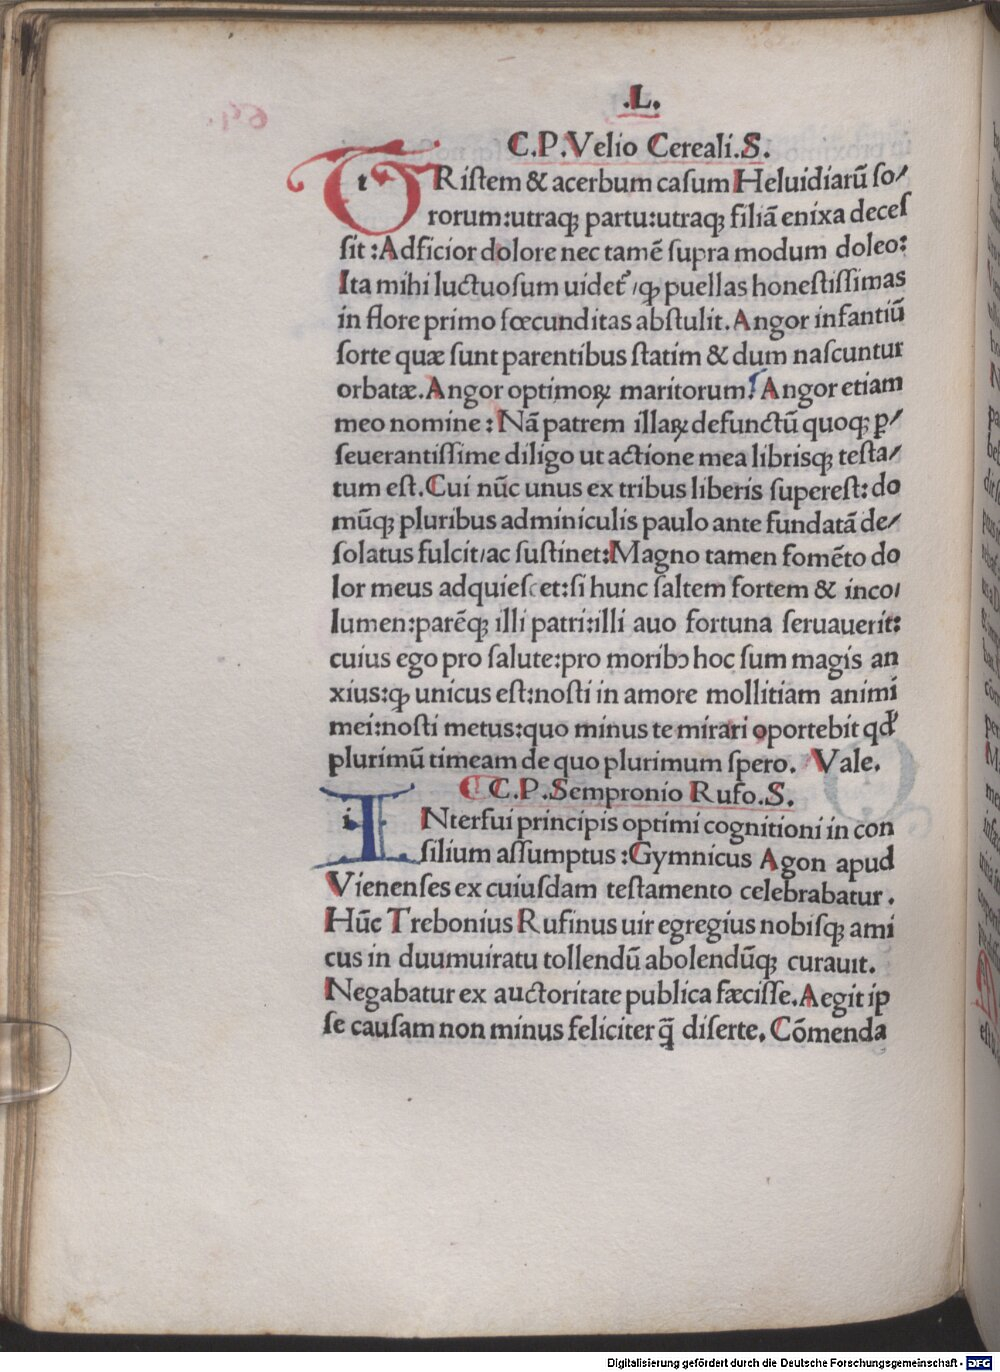 .L.
C.P.Velio Cereali.S.
TRiſtem & acerbum caſum Heluidiarũ ſo/
rorum:utraqꝫ partu:utraqꝫ filiã enixa deceſ
ſit:Adficior dolore nec tamẽ ſupra modum doleo:
Ita mihi luctuoſum uidet᷑/ꝙ puellas honeſtiſſimas
in flore primo fœcunditas abſtulit.Angor infantiũ
ſorte quæ ſunt parentibus ſtatim & dum naſcuntur
orbatæ.Angor optimoꝝ maritorum.Angor etiam
meo nomine:Nã patrem illaꝝ defunctũ quoqꝫ ꝑ/
ſeuerantiſſime diligo ut actione mea librisqꝫ teſta/
tum eſt.Cui nũc unus ex tribus liberis ſupereſt:do
mũqꝫ pluribus adminiculis paulo ante fundatã de/
ſolatus fulcit/ac ſuſtinet:Magno tamen fomẽto do
lor meus adquieſcet:ſi hunc ſaltem fortem & inco/
lumen:parẽqꝫ illi patri:illi auo fortuna ſeruauerit:
cuius ego pro ſalute:pro moribꝰ hoc ſum magis an
xius:ꝙ unicus eſt:noſti in amore mollitiam animi
mei:noſti metus:quo minus te mirari oportebit qđ
plurimũ timeam de quo plurimum ſpero. Vale.
C.P.Sempronio Rufo.S.
INterfui principis optimi cognitioni in con
ſilium aſſumptus:Gymnicus Agon apud
Vienenſes ex cuiuſdam teſtamento celebrabatur.
Hũc Trebonius Rufinus uir egregius nobiſqꝫ ami
cus in duumuiratu tollendũ abolendũqꝫ curauit.
Negabatur ex auctoritate publica fæciſſe.Aegit ip
ſe cauſam non minus feliciter q̃ diſerte.Cõmenda
Digitalisierung gefördert durch die Deutsche Forschungsgemeinschaft - DFG